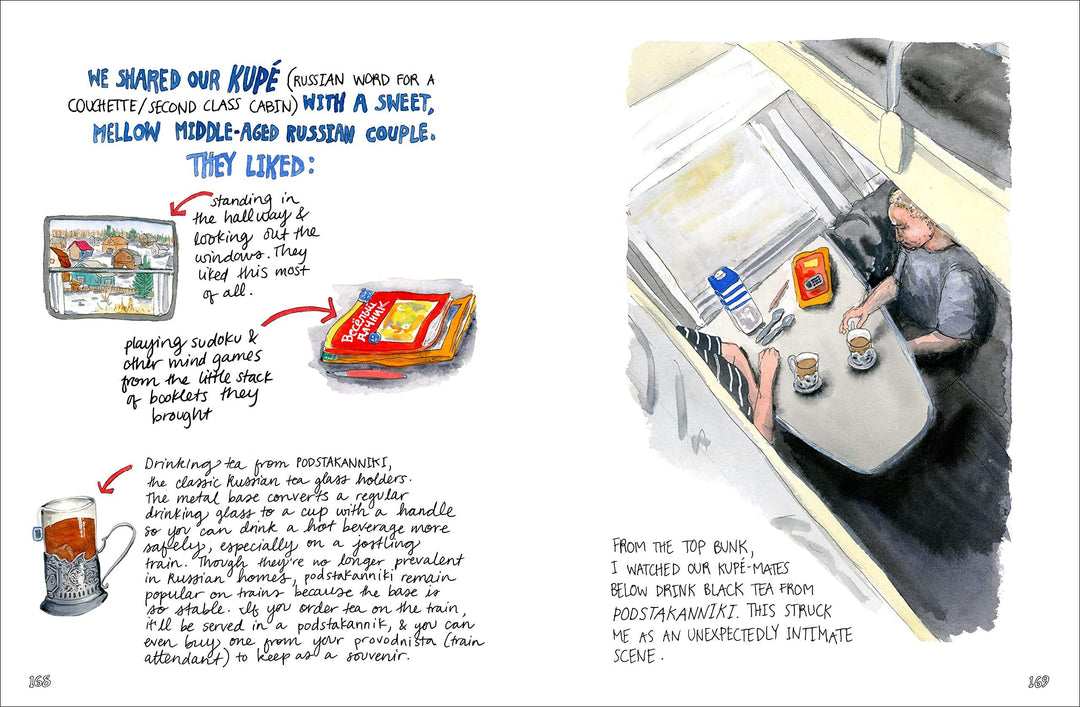 WE SHARED OUR KUPÉ (RUSSIAN WORD FOR A
COUCHETTE/SECOND CLASS CABIN) WITH A SWEET,
MELLOW MIDDLE-AGED RUSSIAN COUPLE.
THEY LIKED:
standing in
the hallway &
looking out the
windows. They
liked this most
of all.
Весёлый
ДАЧНИК
playing sudoku &
other mind games
from the little stack
of booklets they
brought
Drinking tea from PODSTAKANNIKI,
the classic Russian tea glass holders.
The metal base converts a regular
drinking glass to a cup with a handle
so you can drink a hot beverage more
safely, especially on a jostling
train. Though they're no longer prevalent
in Russian homes, podstakanniki remain
popular on trains because the base is
so stable. If you order tea on the train,
it'll be served in a podstakannik, & you can
even buy one from your provodnista (train
attendant) to keep as a souvenir.
168
FROM THE TOP BUNK,
I WATCHED OUR KUPÉ-MATES
BELOW DRINK BLACK TEA FROM
PODSTAKANNIKI. THIS STRUCK
ME AS AN UNEXPECTEDLY INTIMATE
SCENE.
169